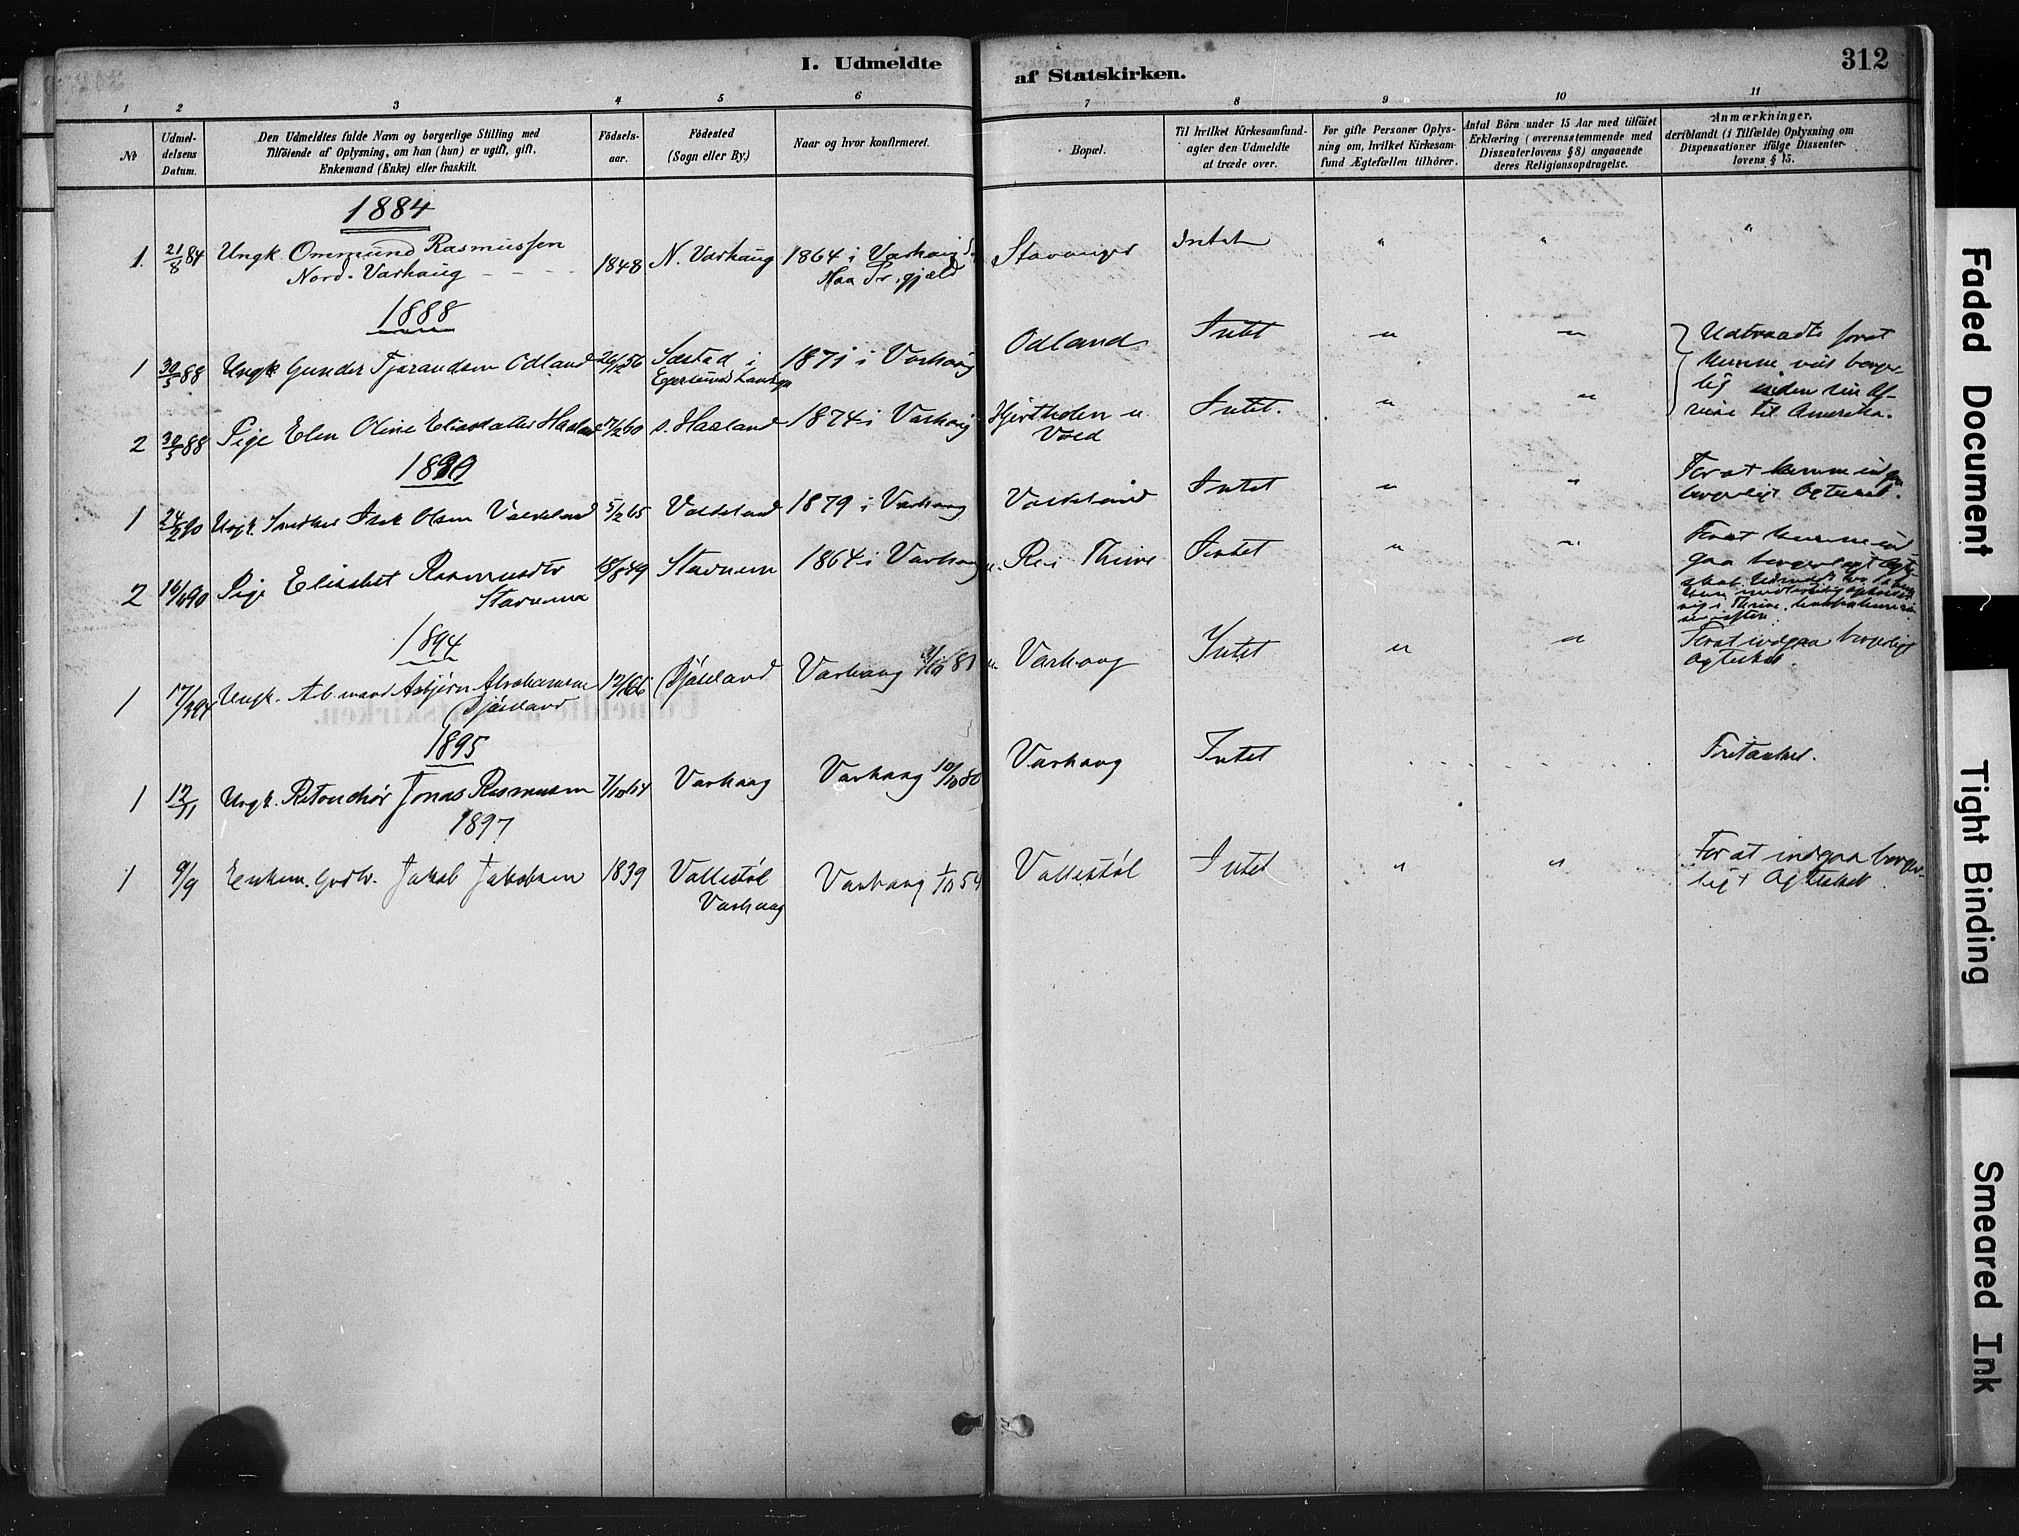 I. Udmeldte af Statskirken.
312
1 2 3 4 5 6 7 8 9 10 11
No
Udmel-
delsens
Datum.
Den Udmeldtes fulde Navn og borgerlige Stilling med
Tilföiende af Oplysning, om han (hun) er ugift, gift,
Enkemand (Enke) eller fraskilt.
Födsels-
aar.
Födested
(Sogn eller By.)
Naar og hvor konfirmeret.
Bopæl.
Til hvilket Kirkesamfund
agter den Udmeldte
at træde over.
For gifte Personer Oplys-
ning om, hvilket Kirkesam-
fund Ægtefællen tilhörer.
Antal Börn under 15 Aar med tilföiet
Erklæring (overensstemmende med
Dissenterlovens § 8) angaaende
deres Religionsopdragelse.
Anmærkninger,
deriblandt (i Tilfælde) Oplysning om
Dispensationer ifölge Dissenter-
lovens § 15.
1884
1. 21/8 84 Ungk. Ommund Rasmussen 1848 N. Varhaug 1864 i Varhaug Stavanger Intet " " "
Nord-Varhaug - - - - Haa Pr.gjæld
1888
1 30/5 88 Ungk Gunder Tjærandsen Odland 26/12 56 Sæstad i 1871 i Varhoug Odland Intet " " Udtraadte forat
Egersunds Landsgn kunne vies borger-
lig inden sin Af-
reise til Amerika.
2 30/5 88 Pige Elen Oline Eliasdatter Haaland /2 60 s. Haaland 1874 i Varhoug Hjertholen u Intet. " "
Vold
1890
1 24/2 90 Ungk. Snedker Isak Olsen Valdeland 5/2 65 Valdeland 1879 i Varhaug Valdeland Intet " " For at kunne indgaa
borgerligt Ægteskab.
2 16/4 90 Pige Elisabet Rasmusdtr 18/8 49 Stavnem 1864 i Varhoug Re i Thime Intet " " Forat kunne ind
Stavnem gaa borgerligt Ægte-
skab.
1894
1 17/3 94 Ungk. Arb.mand Asbjørn Abrahamsen 12/ 66 Djøsland Varhaug 2/10 81 Varhaug Intet " " Forat indgaa borgerligt
Djøsland Ægteskab
1895
1 12/11 Ungk. Retouchør Jonas Rasmussen 7/10 64 Varhaug Varhaug 10/10 80 Varhaug Intet Fritænker.
1897
1 9/9 Enkem. Gaardbr. Jakob Jakobsen 1839 Vallestøl Varhaug 1/10 54 Vallestøl Intet " " For at indgaa borger-
Varhaug ligt Ægteskab.
Faded Document
Tight Binding
Smeared Ink